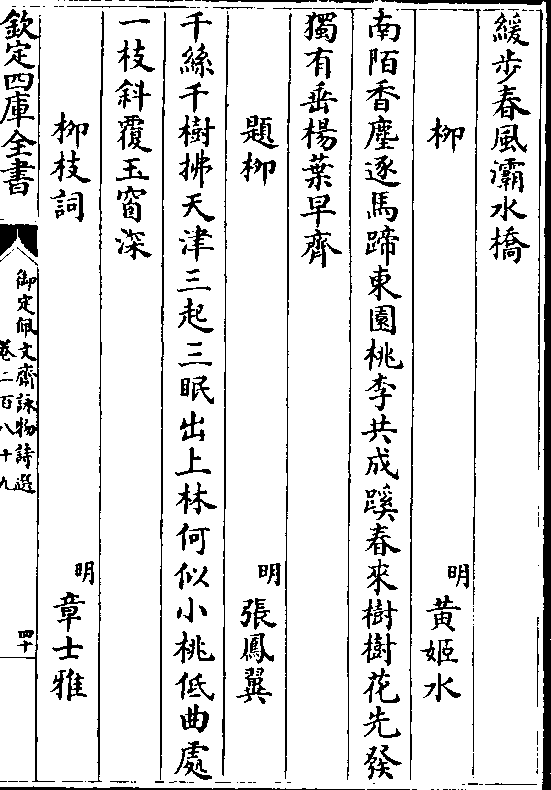 緩步春風灞水橋
柳　明　黃姬水
南陌香塵逐馬蹄東園桃李共成蹊春來樹樹花先發
獨有垂楊葉早齊
題柳　明　張鳳翼
千絲千樹拂天津三起三眠出上林何似小桃低曲處
一枝斜覆玉窗深
柳枝詞　明　章士雅
欽定四庫全書
御定佩文齋詠物詩選
卷二百八十九
四十